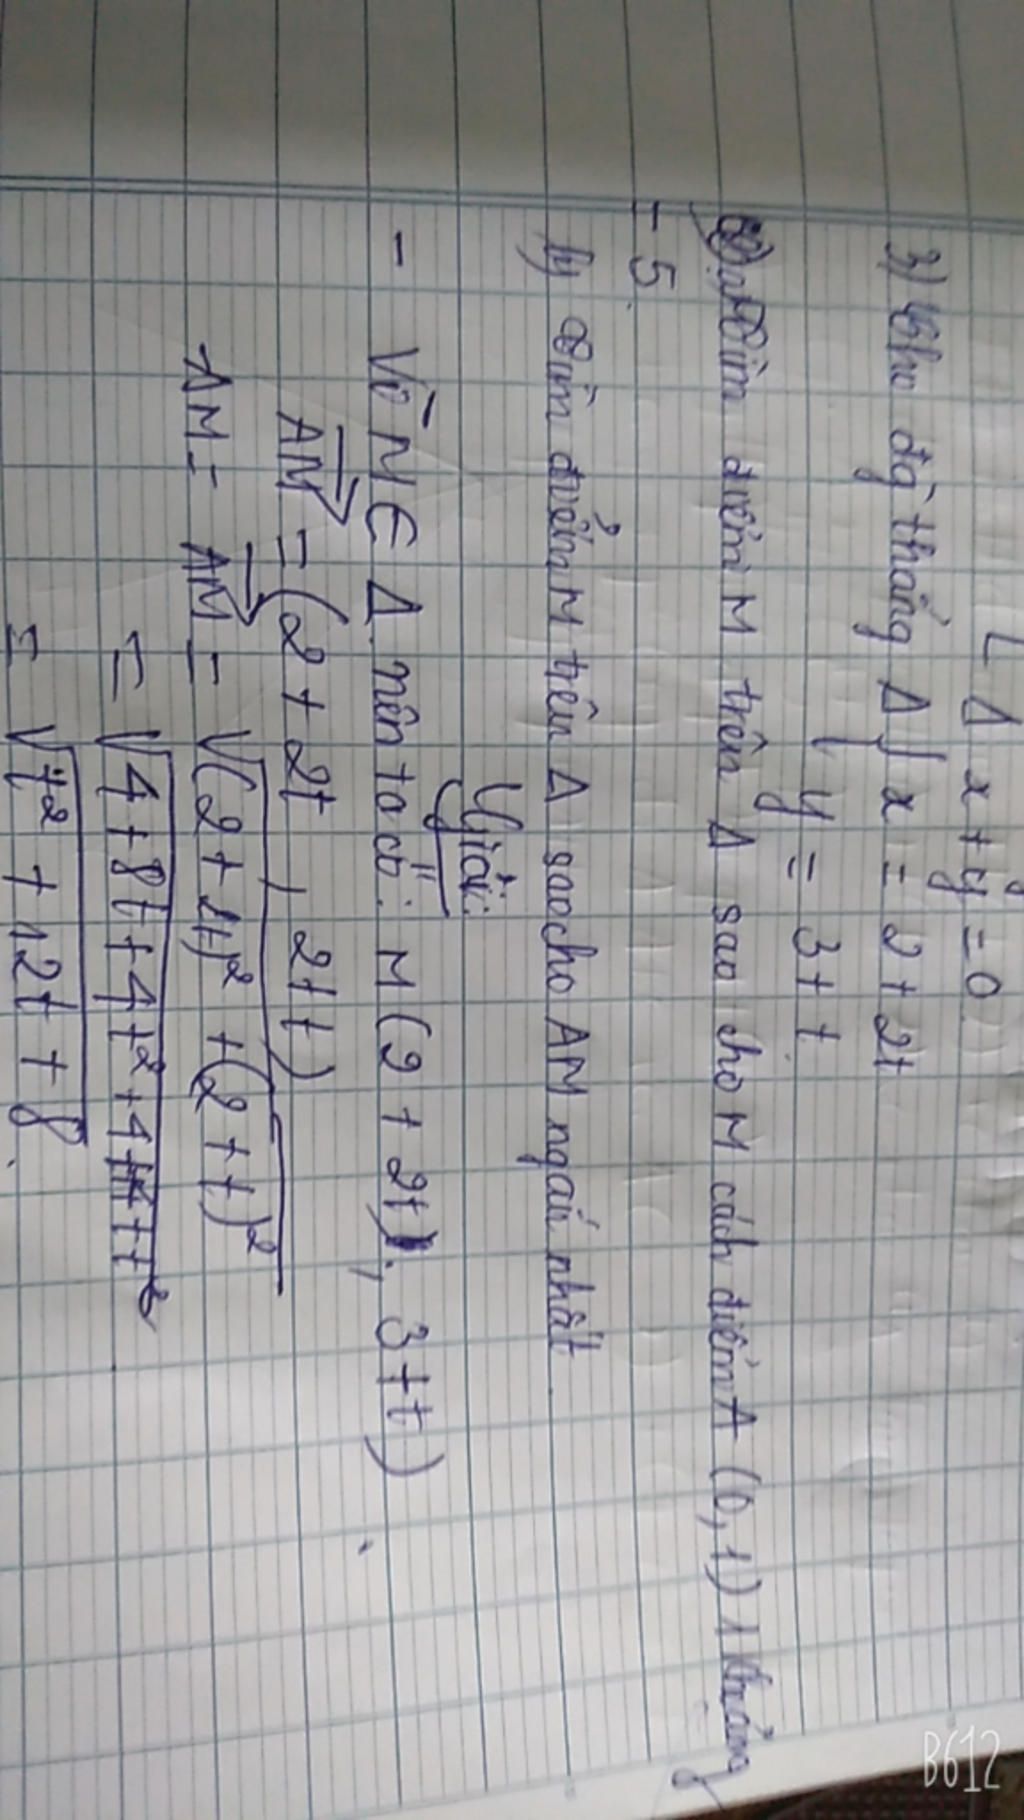 Δ x + y = 0
3) Cho đg thẳng Δ { x = 2 + 2t
y = 3 + t
a) Tìm điểm M trên Δ sao cho M cách điểm A (0, 1) 1 khoảng
= 5.
b) Tìm điểm M trên Δ sao cho AM ngắn nhất
Giải:
- Vì M ∈ Δ nên ta có: M (2 + 2t ; 3 + t)
AM = (2 + 2t , 2t)
AM = AM = √(2 + 2t)² + (2 + t)²
= √4 + 8t + 4t² + 4 + 4t + t²
= √t² + 12t + 8.
B612